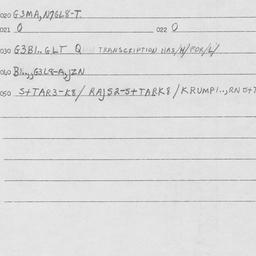 020 G3MA,N7GL8-T.
021 0 022 0
030 G3BI.. GLT Q TRANSCRIPTION HAS/H/FOR/L/
040 BI..,,G3L8-A,,ZN
050 S+TAR3-K8/ RAJS2-S+TARK8/KRUMPI..,RN S+T